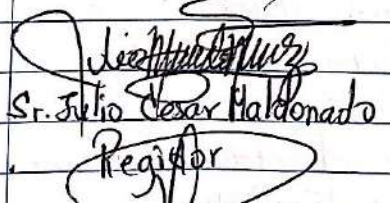 Sr. Julio Cesar Maldonado
Regidor